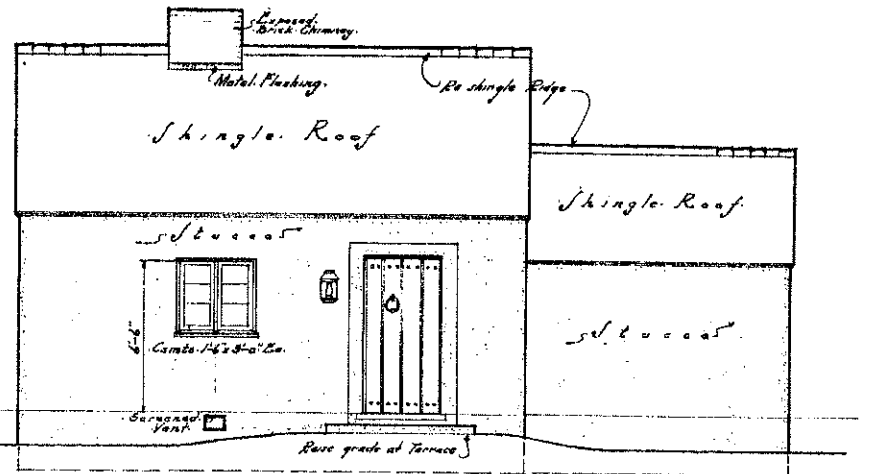 Exposed
Brick Chimney.
Metal Flashing.
Re shingle Ridge
Shingle Roof
Shingle Roof.
Stucco
6'-6"
Stucco
Screened
Vent.
Raise grade at Terrace